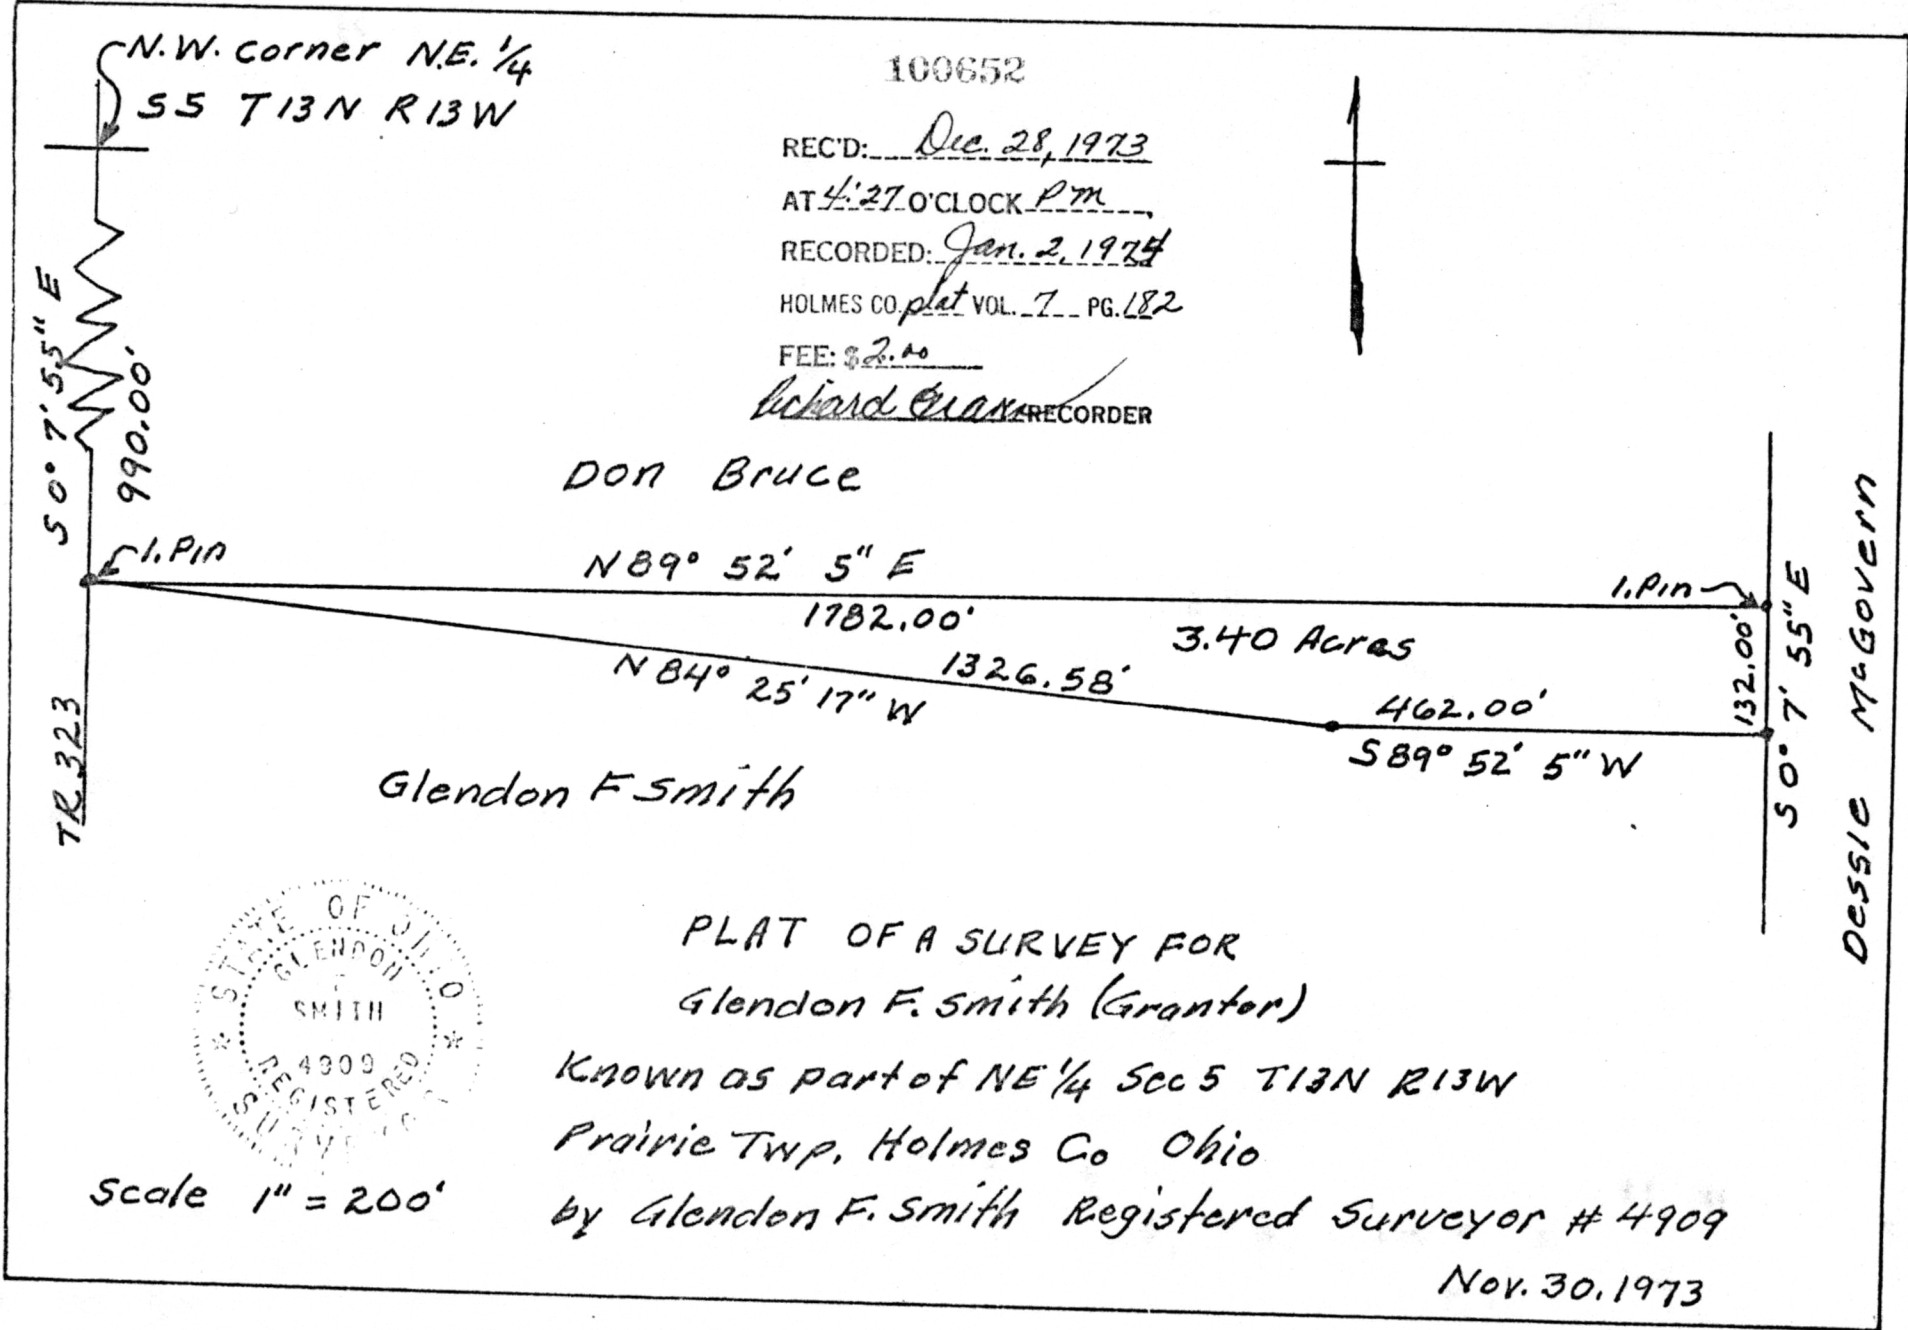 N.W. Corner N.E. 1/4
S5 T13N R13W
100652
REC'D: Dec. 28, 1973
AT 4:27 O'CLOCK P M,
RECORDED: Jan. 2, 1974
HOLMES CO. plat VOL. 7 PG. 182
FEE: $2.00
Richard RECORDER
S 0° 7' 55" E
990.00'
Don Bruce
I. Pin
N 89° 52' 5" E
1782.00'
3.40 Acres
I. Pin
132.00'
S 0° 7' 55" E
Dessie McGovern
N 84° 25' 17" W
1326.58'
462.00'
S 89° 52' 5" W
TR 323
Glendon F Smith
STATE OF OHIO
GLENDON
F
SMITH
4909
REGISTERED
SURVEYOR
PLAT OF A SURVEY FOR
Glendon F. Smith (Grantor)
Known as part of NE 1/4 Sec 5 T13N R13W
Prairie Twp. Holmes Co Ohio
by Glendon F. Smith Registered Surveyor # 4909
Scale 1" = 200'
Nov. 30. 1973